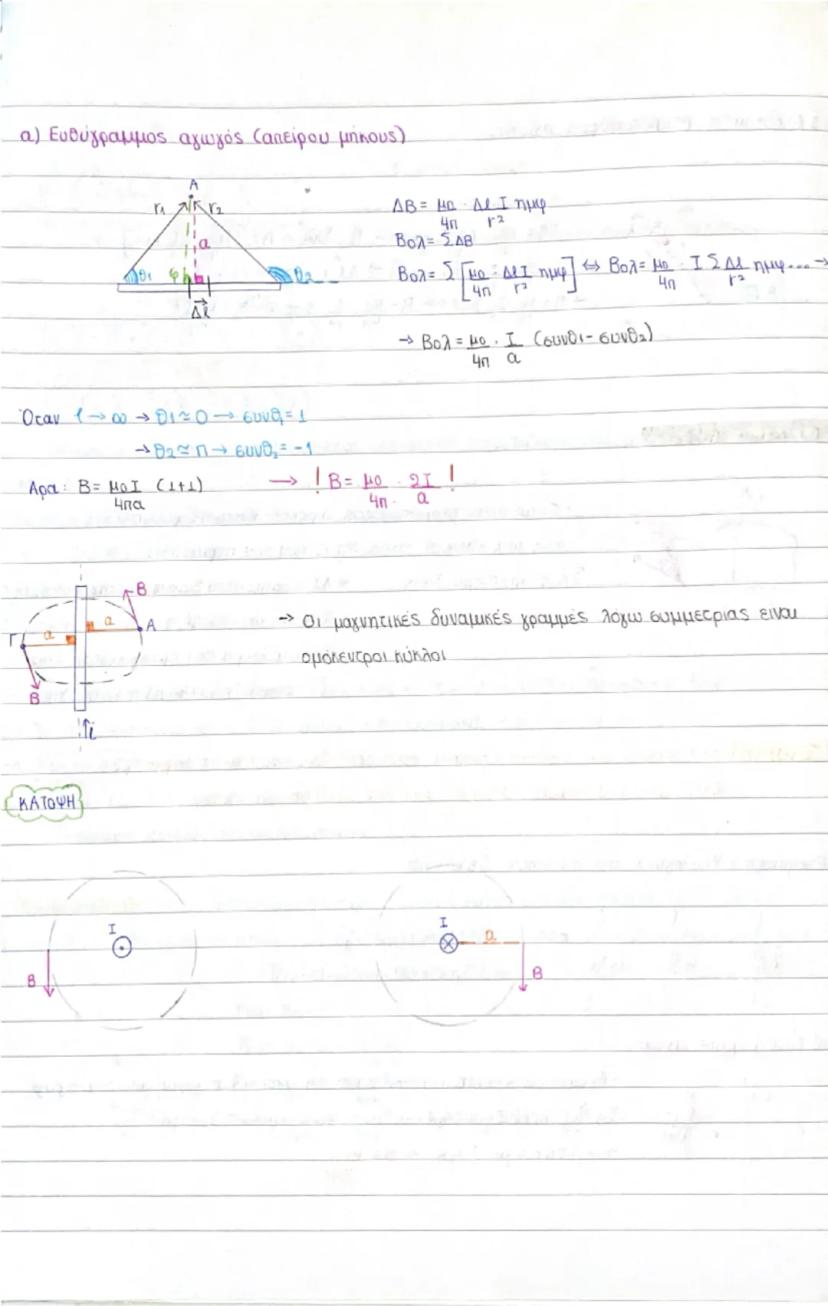 α) Ευθύγραμμος αγωγός (απείρου μήκους)
A
r1 r2
a
θ1 φ θ2
Δl
ΔB = μο/4π · Δl I/r² ημφ
Βολ = ΣΔΒ
Βολ = Σ[μο/4π · ΔlI/r² ημφ] ⇔ Βολ = μο/4π · I Σ Δl/r² ημφ....→
→ Βολ = μο/4π · I/a (συνθ1 - συνθ2)
Όταν l → ∞ → θ1 ≃ 0 → συνθ1 = 1
→ θ2 ≃ π → συνθ2 = -1
Άρα: B = μοI/4πa (1+1) → ! B = μο/4π · 2I/a !
B
a A
Γ a
B
i
→ Οι μαγνητικές δυναμικές γραμμές λόγω συμμετρίας είναι
ομόκεντροι κύκλοι
ΚΑΤΟΨΗ
I I
a
B B